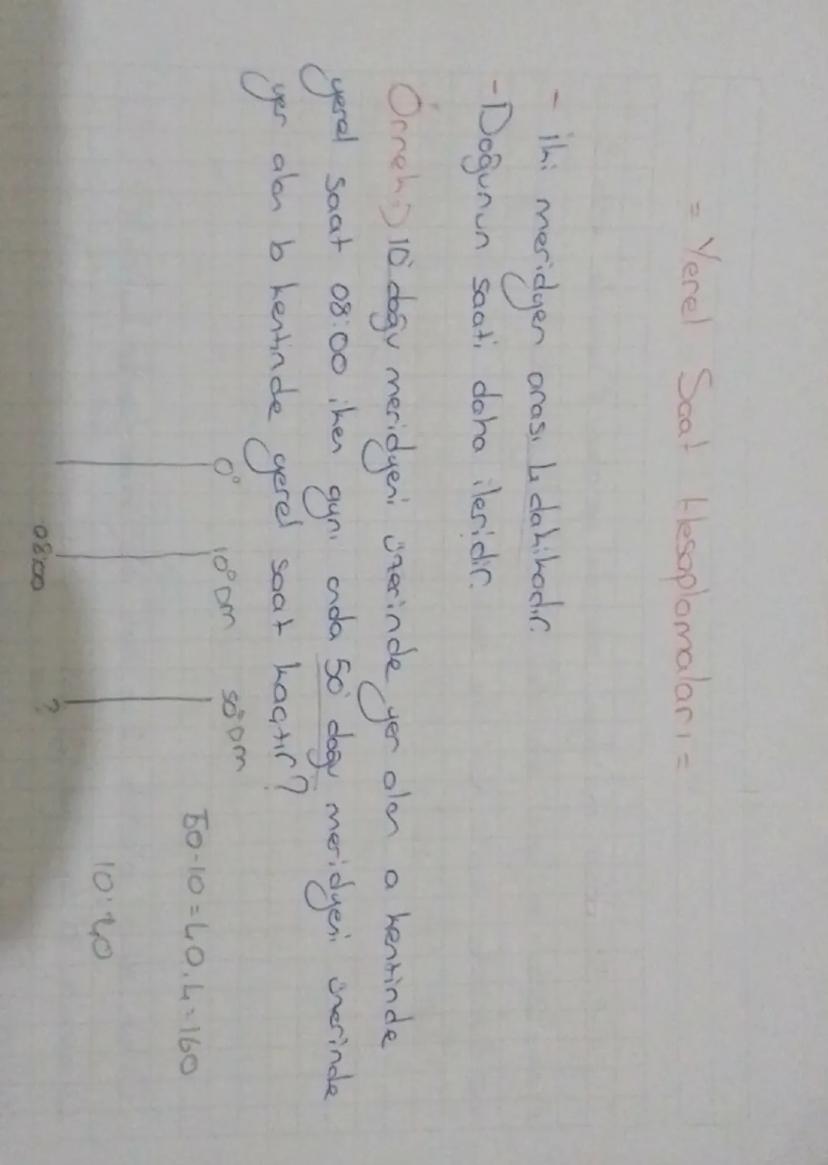 = Yerel Saat Hesaplamaları =
- iki meridyen arası 4 dakikadır.
- Doğunun saati daha ileridir.
Örnek:) 10° doğu meridyeni üzerinde yer alan a kentinde
yerel saat 08:00 iken aynı anda 50° doğu meridyeni üzerinde
yer alan b kentinde yerel saat kaçtır?
0° 10° DM 50° DM
08:00 ?
50-10=40.4=160
10:40